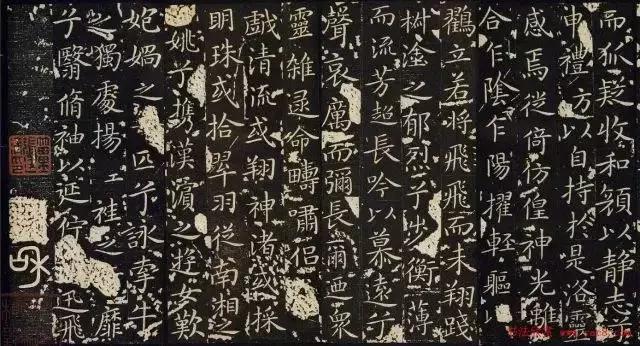 而狐疑收和顏以静志
申禮方以自持於是洛靈
感焉徙倚彷徨神光離
合乍陰乍陽擢輕軀以
鸖立若將飛飛而未翔踐
椒塗之郁烈兮步衡薄
而流芳超長吟以慕遠兮
聲哀厲而彌長爾迺衆
靈雜遝命疇嘯侶
戲清流或翔神渚或採
明珠或拾翠羽從南湘之
姚兮攜漢濱之遊女歎
媧之匹兮詠牽牛
之獨處揚袿之靡
兮翳脩袖以延佇迅飛